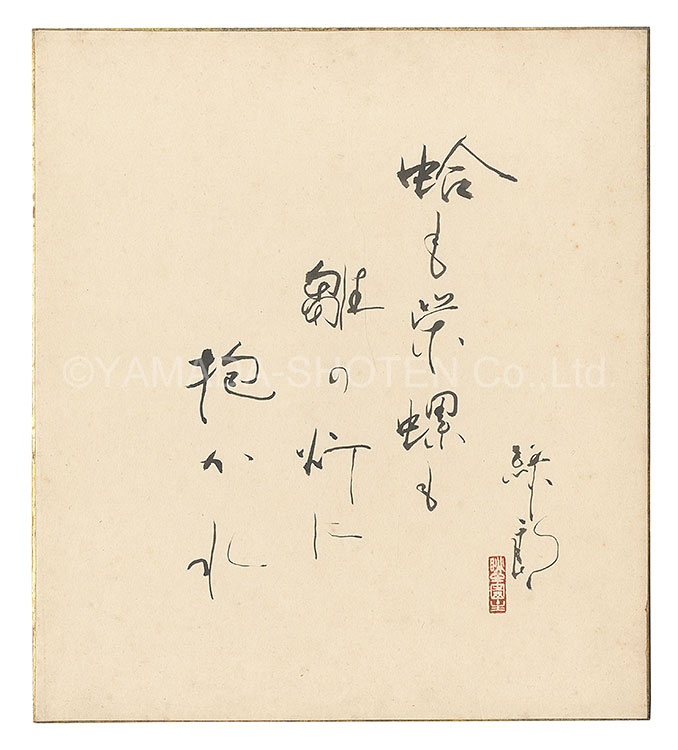 蛤も栄螺も
雛の灯に
抱かれ
©YAMADA-SHOTEN Co.,Ltd.